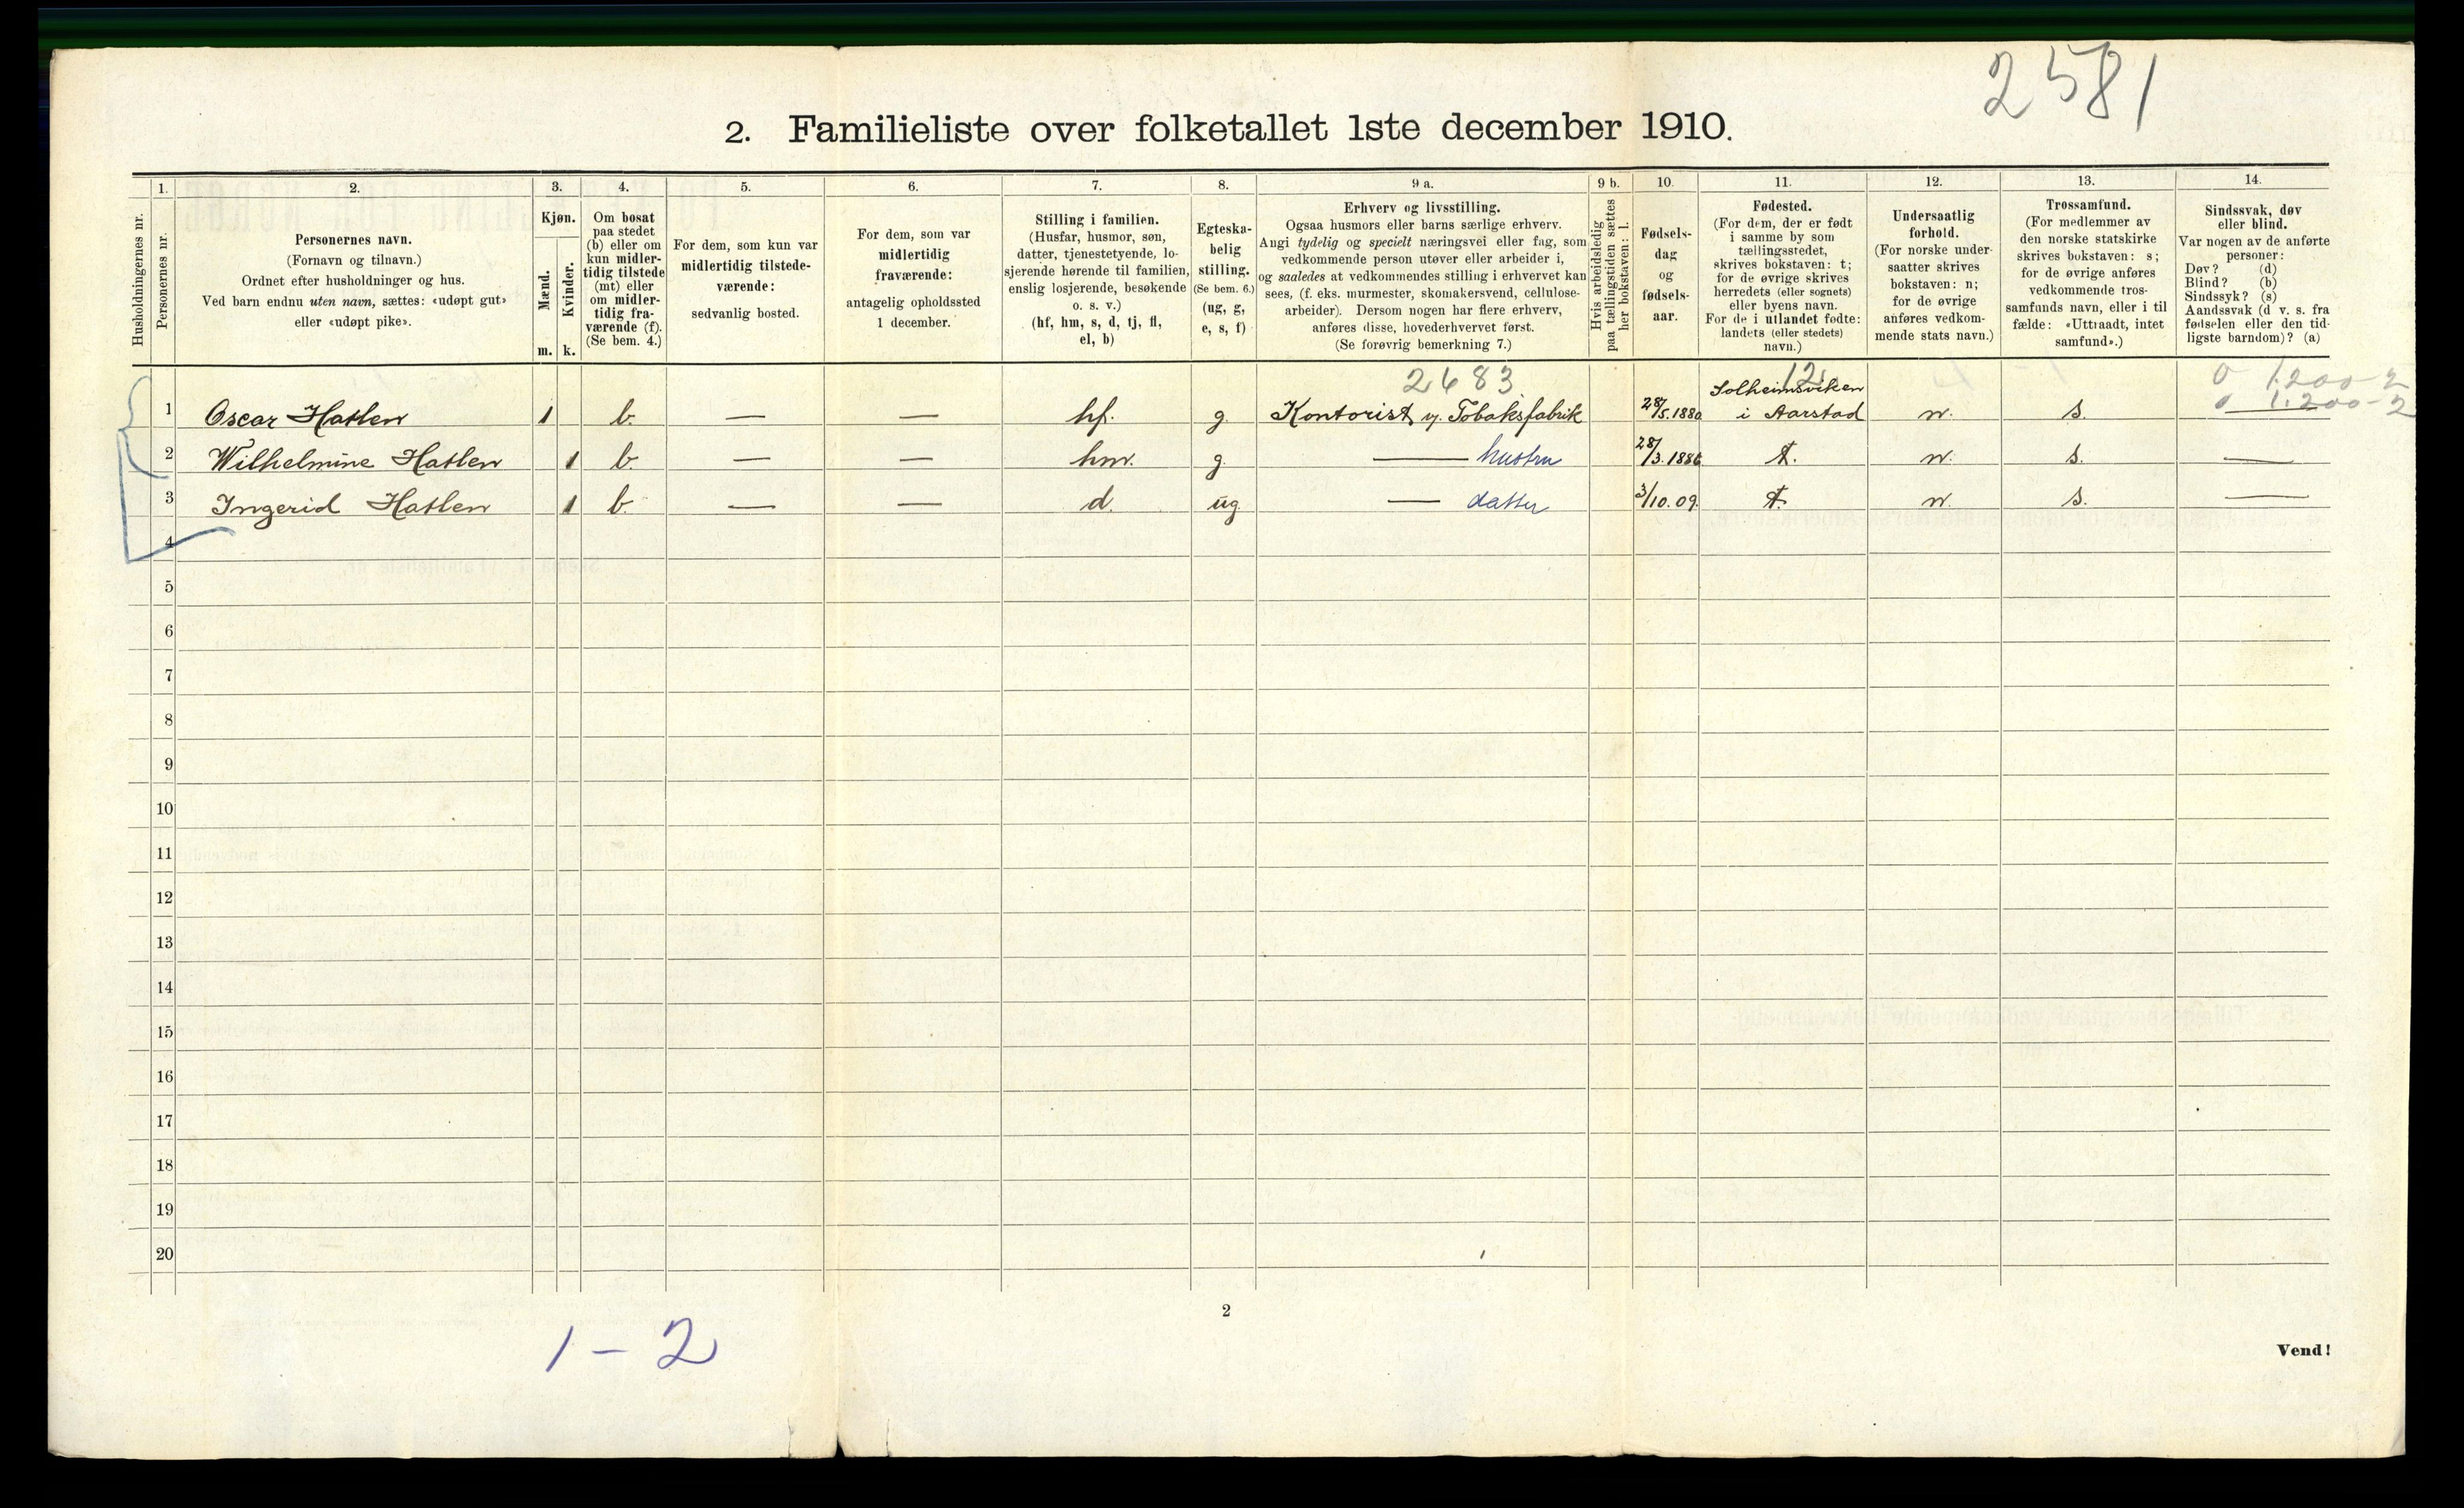 2581
2. Familieliste over folketallet 1ste december 1910.
1. 2. 3. 4. 5. 6. 7. 8. 9 a. 9 b. 10. 11. 12. 13. 14.
Husholdningernes nr.
Personernes nr.
Personernes navn.
(Fornavn og tilnavn.)
Ordnet efter husholdninger og hus.
Ved barn endnu uten navn, sættes: «udøpt gut»
eller «udøpt pike».
Kjøn.
Mænd.
Kvinder.
m. k.
Om bosat
paa stedet
(b) eller om
kun midler-
tidig tilstede
(mt) eller
om midler-
tidig fra-
værende (f).
(Se bem. 4.)
For dem, som kun var
midlertidig tilstede-
værende:
sedvanlig bosted.
For dem, som var
midlertidig
fraværende:
antagelig opholdssted
1 december.
Stilling i familien.
(Husfar, husmor, søn,
datter, tjenestetyende, lo-
sjerende hørende til familien,
enslig losjerende, besøkende
o. s. v.)
(hf, hm, s, d, tj, fl,
el, b)
Egteska-
belig
stilling.
(Se bem. 6.)
(ug, g,
e, s, f)
Erhverv og livsstilling.
Ogsaa husmors eller barns særlige erhverv.
Angi tydelig og specielt næringsvei eller fag, som
vedkommende person utøver eller arbeider i,
og saaledes at vedkommendes stilling i erhvervet kan
sees, (f. eks. murmester, skomakersvend, cellulose-
arbeider). Dersom nogen har flere erhverv,
anføres disse, hovederhvervet først.
(Se forøvrig bemerkning 7.)
Hvis arbeidsledig
paa tællingstiden sættes
her bokstaven: l.
Fødsels-
dag
og
fødsels-
aar.
Fødested.
(For dem, der er født
i samme by som
tællingsstedet,
skrives bokstaven: t;
for de øvrige skrives
herredets (eller sognets)
eller byens navn.
For de i utlandet fødte:
landets (eller stedets)
navn.)
Undersaatlig
forhold.
(For norske under-
saatter skrives
bokstaven: n;
for de øvrige
anføres vedkom-
mende stats navn.)
Trossamfund.
(For medlemmer av
den norske statskirke
skrives bokstaven: s;
for de øvrige anføres
vedkommende tros-
samfunds navn, eller i til
fælde: «Uttraadt, intet
samfund».)
Sindssvak, døv
eller blind.
Var nogen av de anførte
personer:
Døv? (d)
Blind? (b)
Sindssyk? (s)
Aandssvak (d. v. s. fra
fødselen eller den tid-
ligste barndom)? (a)
2683 12 0 1.200-2
Solheimsviken 0 1.200-2
1 Oscar Hatlen 1 b. — — hf. g. Kontorist v. Tobaksfabrik 28/5.1880 i Aarstad n. s. —
2 Wilhelmine Hatlen 1 b. — — hm. g. — hustru 28/3.1886 t. n. s. —
3 Ingerid Hatlen 1 b. — — d. ug — datter 3/10.09. t. n. s. —
4
5
6
7
8
9
10
11
12
13
14
15
16
17
18
19
20
2
1 - 2
Vend!